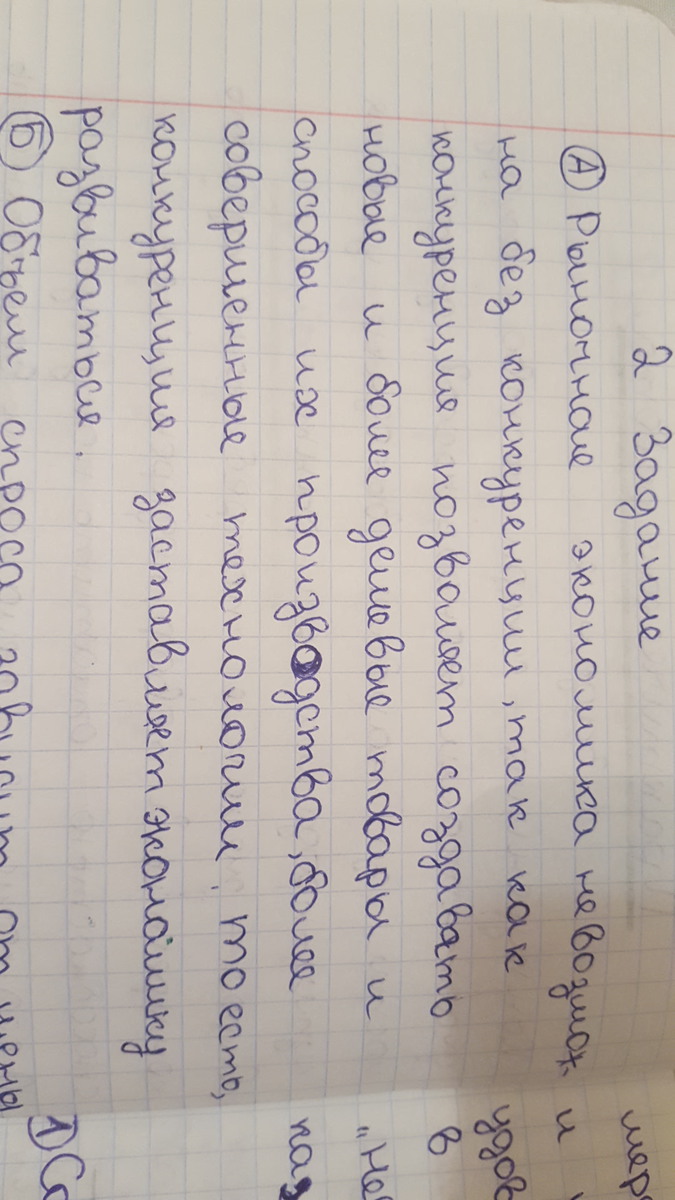 2 Задание
Ⓐ Рыночная экономика невозмож
на без конкуренции, так как
конкуренция позволяет создавать
новые и более дешевые товары и
способы их производства, более
совершенные технологии, то есть,
конкуренция заставляет экономику
развиваться.
Ⓑ Объем спроса зависит от цены
мер
и
удов
в
"Не
каз
① Со